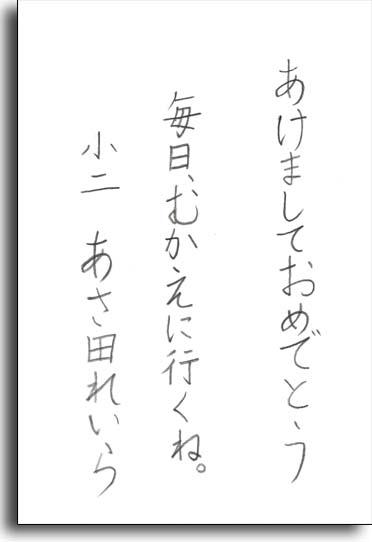 あけましておめでとう
毎日、むかえに行くね。
小二 あさ田れいら